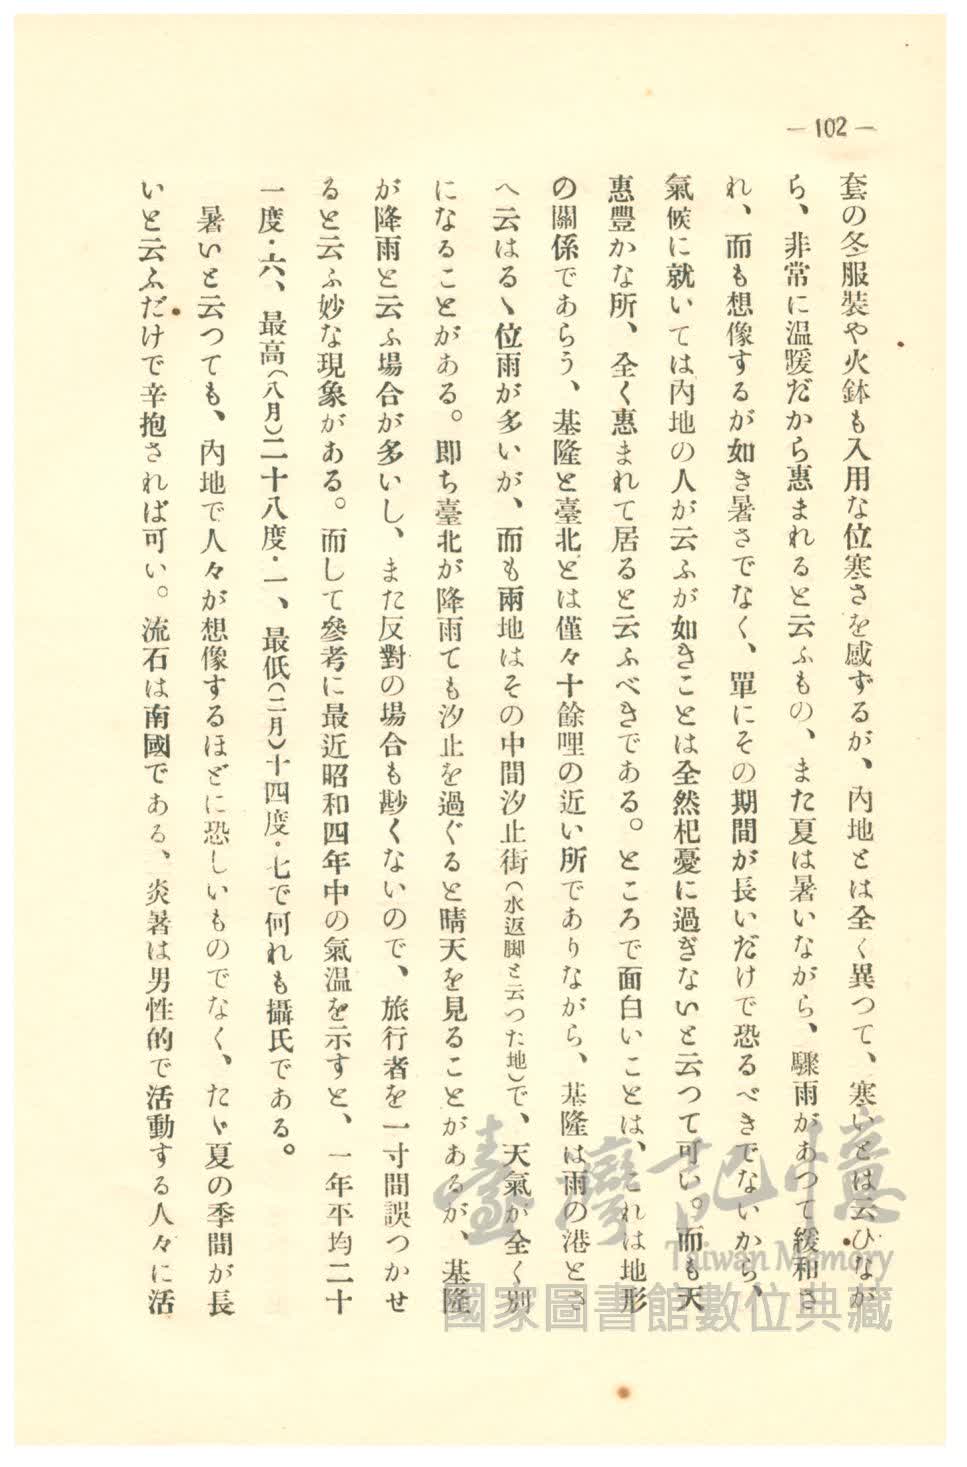 — 102 —
套の冬服裝や火鉢も入用な位寒さを感ずるが、內地とは全く異つて、寒いとは云ひなが
ら、非常に溫暖だから惠まれると云ふもの、また夏は暑いながら、驟雨があつて緩和さ
れ、而も想像するが如き暑さでなく、單にその期間が長いだけで恐るべきでないから、
氣候に就いては內地の人が云ふが如きことは全然杞憂に過ぎないと云つて可い。而も天
惠豐かな所、全く惠まれて居ると云ふべきである。ところで面白いことは、これは地形
の關係であらう、基隆と臺北とは僅々十餘哩の近い所でありながら、基隆は雨の港とさ
へ云はるゝ位雨が多いが、而も兩地はその中間汐止街(水返脚と云つた地)で、天氣が全く別
になることがある。卽ち臺北が降雨ても汐止を過ぐると晴天を見ることがあるが、基隆
が降雨と云ふ場合が多いし、また反對の場合も尠くないので、旅行者を一寸間誤つかせ
ると云ふ妙な現象がある。而して參考に最近昭和四年中の氣溫を示すと、一年平均二十
一度・六、最高(八月)二十八度・一、最低(二月)十四度・七で何れも攝氏である。
暑いと云つても、內地で人々が想像するほどに恐しいものでなく、たゞ夏の季間が長
いと云ふだけで辛抱されば可い。流石は南國である、炎暑は男性的で活動する人々に活
臺灣記憶
Taiwan Memory
國家圖書館數位典藏